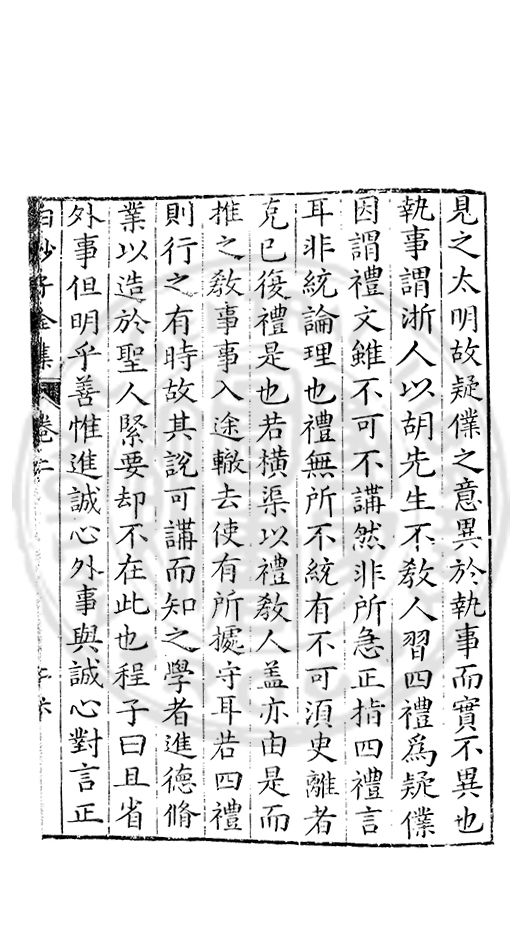 見之太明故疑僕之意異於執事而實不異也
執事謂浙人以胡先生不教人習四禮為疑僕
因謂禮文雖不可不講然非所急正指四禮言
耳非統論理也禮無所不統有不可須臾離者
克己復禮是也若橫渠以禮教人盖亦由是而
推之教事事入途轍去使有所據守耳若四禮
則行之有時故其說可講而知之學者進德脩
業以造於聖人緊要却不在此也程子曰且省
外事但明乎善惟進誠心外事與誠心對言正
白沙子全集 卷二